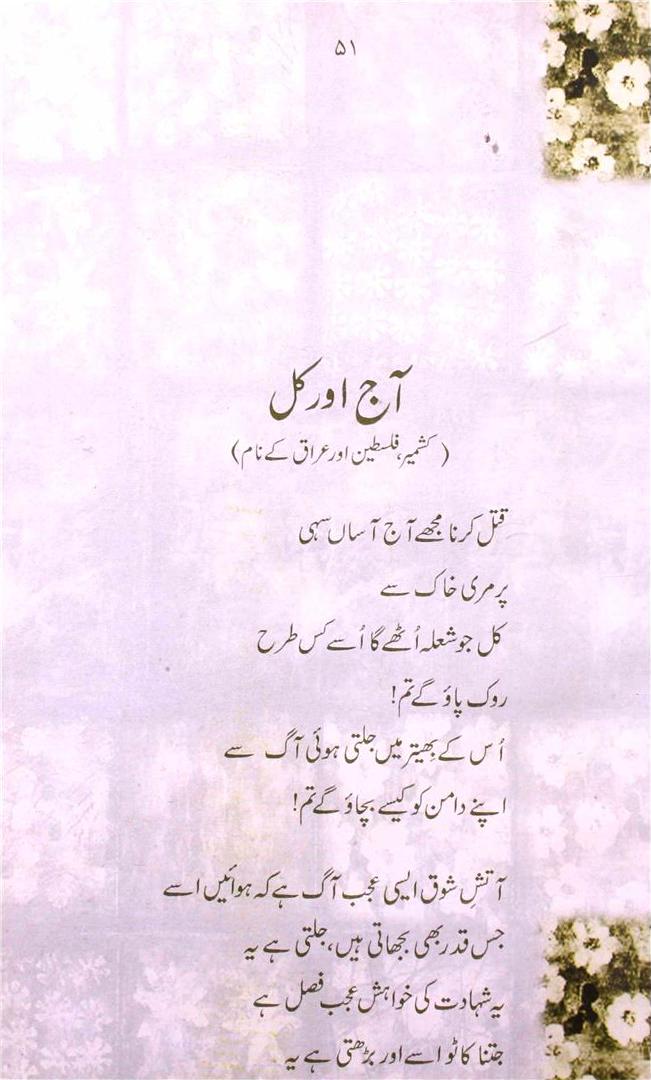 ۵۱
آج اور کل
(کشمیر، فلسطین اور عراق کے نام)
قتل کرنا مجھے آج آساں سہی
پر مری خاک سے
کل جو شعلہ اُٹھے گا اُسے کس طرح
روک پاؤ گے تم!
اُس کے بِھیتر میں جلتی ہوئی آگ سے
اپنے دامن کو کیسے بچاؤ گے تم!
آتشِ شوق ایسی عجب آگ ہے کہ ہوائیں اسے
جس قدر بھی بجھاتی ہیں، جلتی ہے یہ
یہ شہادت کی خواہش عجب فصل ہے
جتنا کاٹو اسے اور بڑھتی ہے یہ